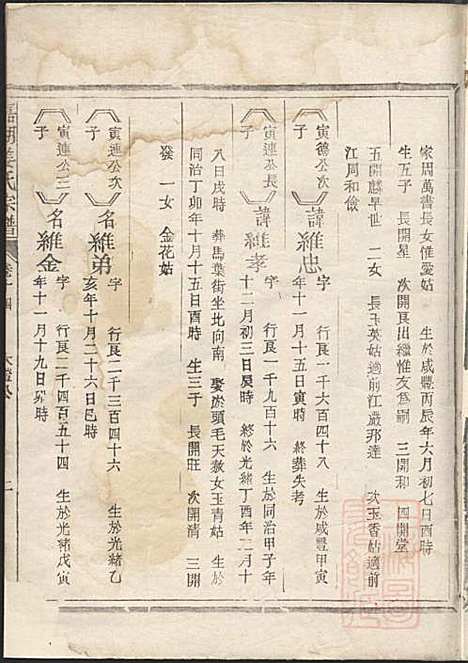 家周萬書長女催愛姑 生於咸豐丙辰年六月初七日酉時
生五子 長開星 次開良出繼惟友爲嗣 三開和 四開堂
五開麟早世 二女 長玉英姑適前江嚴邢達 次玉香姑適前
江周和儉
寅德公次子 諱維忠 字 行良一千六百四十八 生於咸豐甲寅
年十一月十五日寅時 終葬失考
寅連公長子 諱維孝 字 行良一千九百十六 生於同治甲子年
十二月初三日辰時 終於光緒丁酉年二月十
八日戌時 葬馬葉街坐北向南 娶淤頭毛天敘女玉青姑 生於
同治丁卯年十月十五日酉時 生三子 長開旺 次開清 三開
發 一女 金花姑
寅連公次子 名維弟 字 行良二千三百四十六 生於光緒乙
亥年十月二十六日巳時
寅連公三子 名維金 字 行良二千四百五十四 生於光緒戊寅
年十一月十九日卯時
氏宗譜 卷十四 二